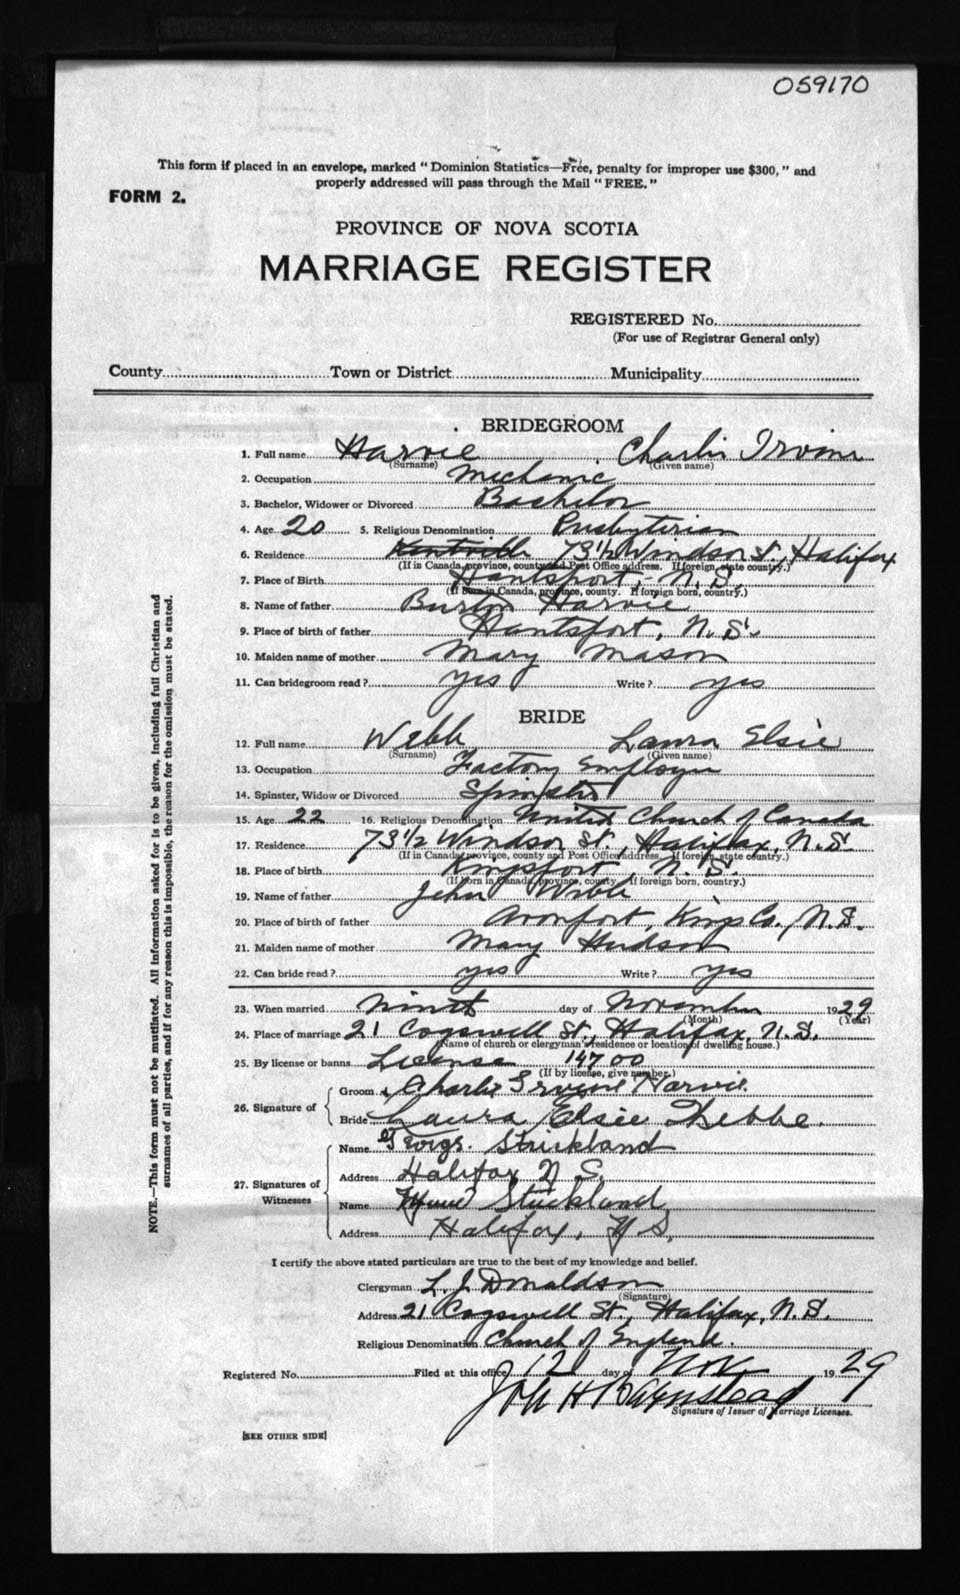 059170
This form if placed in an envelope, marked " Dominion Statistics—Free, penalty for improper use $300, " and
properly addressed will pass through the Mail " FREE. "
FORM 2.
PROVINCE OF NOVA SCOTIA
MARRIAGE REGISTER
REGISTERED No.
(For use of Registrar General only)
County Town or District Municipality
BRIDEGROOM
1. Full name Harvie Charlie Irvine
(Surname) (Given name)
2. Occupation Mechanic
3. Bachelor, Widower or Divorced Bachelor
4. Age 20 5. Religious Denomination Presbyterian
6. Residence Kentville 73 1/2 Windsor St., Halifax
(If in Canada, province, county and Post Office address. If foreign, state country.)
7. Place of Birth Hantsport, - N. S.
(If born in Canada, province, county. If foreign born, country.)
8. Name of father Burton Harvie
9. Place of birth of father Hantsport, N. S.
10. Maiden name of mother Mary Mason
11. Can bridegroom read ? yes Write ? yes
BRIDE
12. Full name Webb Laura Elsie
(Surname) (Given name)
13. Occupation Factory Employee
14. Spinster, Widow or Divorced Spinster
15. Age 22 16. Religious Denomination United Church of Canada
17. Residence 73 1/2 Windsor St., Halifax, N. S.
(If in Canada, province, county and Post Office address. If foreign, state country.)
18. Place of birth Kingsport, N. S.
(If born in Canada, province, county. If foreign born, country.)
19. Name of father John Webb
20. Place of birth of father Avonport, Kings Co., N. S.
21. Maiden name of mother Mary Hudson
22. Can bride read ? yes Write ? yes
23. When married Ninth day of November 1929
(Month) (Year)
24. Place of marriage 21 Cogswell St., Halifax, N. S.
(Name of church or clergyman's residence or location of dwelling house.)
25. By license or banns License 14700
(If by license, give number.)
26. Signature of
Groom Charlie Ervine Harvie
Bride Laura Elsie Webbe.
27. Signatures of Witnesses
Name George Strickland
Address Halifax N S.
Name Strickland
Address Halifax, N S.
I certify the above stated particulars are true to the best of my knowledge and belief.
Clergyman L. J. Donaldson
(Signature)
Address 21 Cogswell St., Halifax, N. S.
Religious Denomination Church of England.
Registered No. Filed at this office 12 day of Nov 1929
H Barnstead
Signature of Issuer of Marriage Licenses.
[SEE OTHER SIDE]
NOTE.—This form must not be mutilated. All information asked for is to be given, including full Christian and
surnames of all parties, and if for any reason this is impossible, the reason for the omission must be stated.